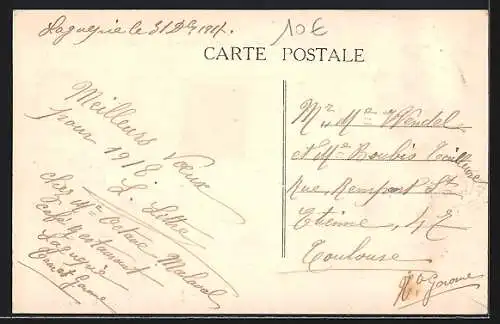 Laguepie le 31 Dbre 1917.
10€
CARTE POSTALE
Meilleurs Voeux
pour 1918.
L. Littre
chez Mr Octave Malaval
Café Restaurant
Laguepie
Tarn et Garonne
Mr & Me Wendel
et Me Roubis Tailleuse
Rue Rempart St
Etienne, 42
Toulouse
Hte Garonne